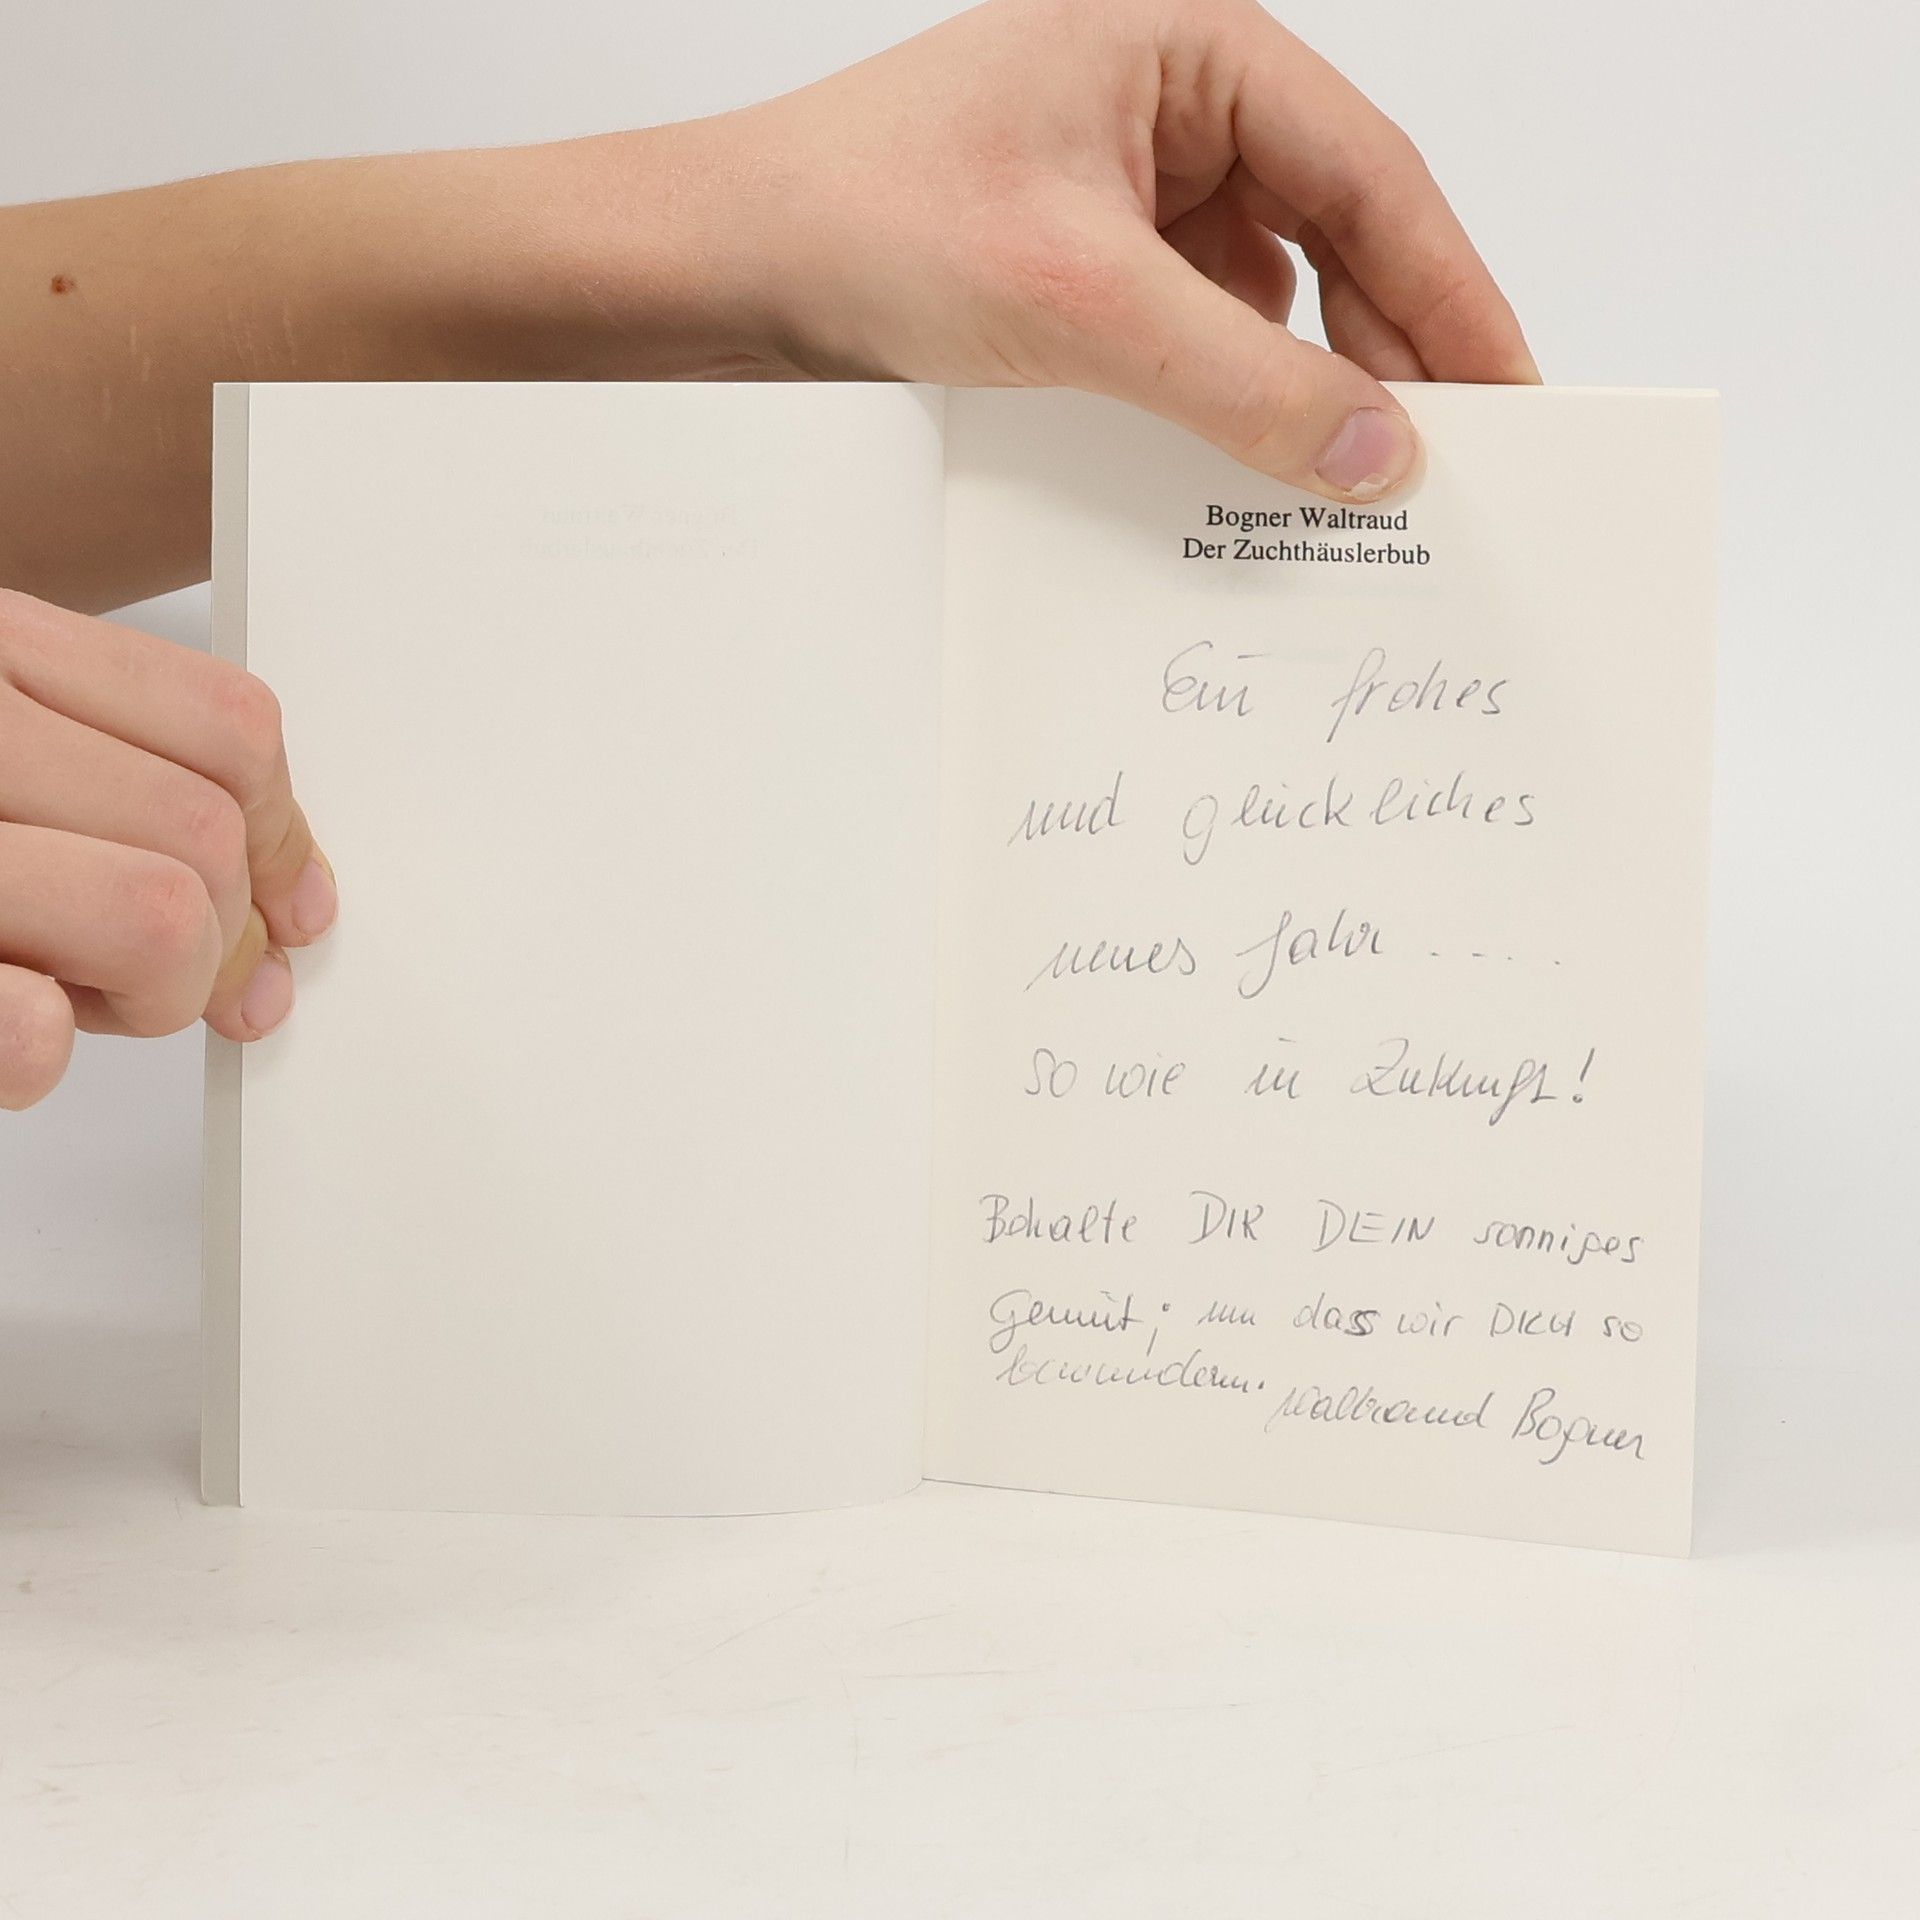 Bogner Waltraud
Der Zuchthäuslerbub
Ein frohes
und glückliches
neues Jahr ....
so wie in Zukunft!
Behalte DIR DEIN sonniges
Gemüt; um dass wir DICH so
bewundern. Waltraud Bogner